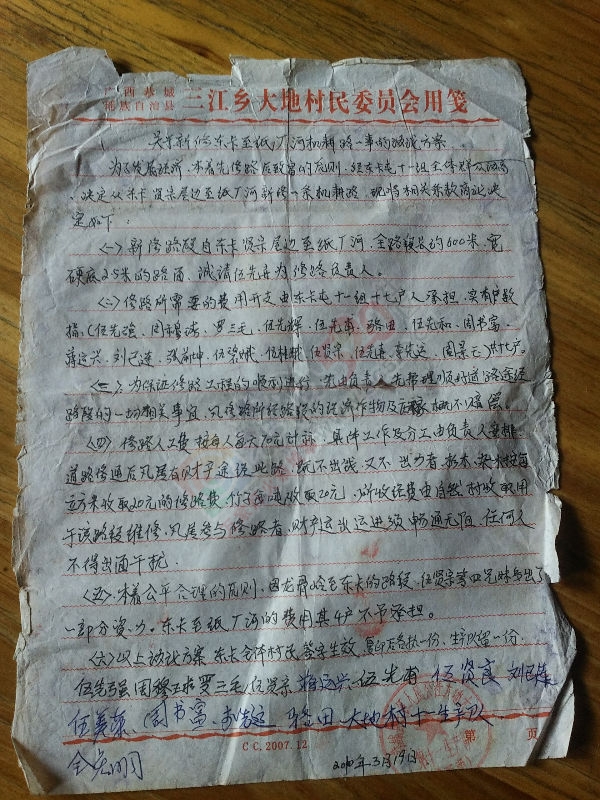 广西恭城
瑶族自治县 三江乡大地村民委员会用笺
关于新修东卡至纸厂河机耕路一事的协议方案
为了发展经济，本着先修路后致富的原则，经东卡屯十一组全体群众
决定从东卡贤宗屋边至纸厂河新修一条机耕路，现将相关条款商议决
定如下：
(一) 新修路段自东卡贤宗屋边至纸厂河，全路程长约600米，宽
硬底2.5米的路面，诚请伍先 为修路负责人。
(二) 修路所需要的费用开支由东卡屯十一组十七户人承担，实有户数
(伍先强、周 、罗三毛、伍先辉、伍先甫、骆田、伍先和、周书富、
蒋运兴、刘已连、张 坤、 、伍 、伍贤宗、伍先 、李先运、周景云) 共十七户。
(三)、为保证修路工程的顺利进行，先由负责人先带理顺好道路途经
路段的一切相关事宜，凡修路所经路段的经济作物及 概不赔偿。
(四) 修路人工费按每人每天70元计算，具体工作及分工由负责人安排，
道路修通后凡属有财产途经此路，既不出钱，又不出力者，杉木、杂木按每
立方米收取20元的修路费，竹子每吨收取20元，所收经费由自然村收取用
于该路段维修，凡属参与修路者，财产运出运进须畅通无阻，任何人
不得出面干扰。
(五) 本着公平合理的原则，因龙 路至东卡的路段，伍贤宗等四兄妹已出了
一部分资力，东卡至纸厂河的费用其4户不予承担。
(六) 以上协议方案东卡全体村民签字生效，复印后各执一份，生产队留一份。
伍先强 周 罗三毛 伍贤宗 蒋运兴 伍先甫 伍贤良 刘已
伍美 周书富 李先运 骆田 大地村十一生产队
全光明
第 页
CC.2007.12
2010年3月19日